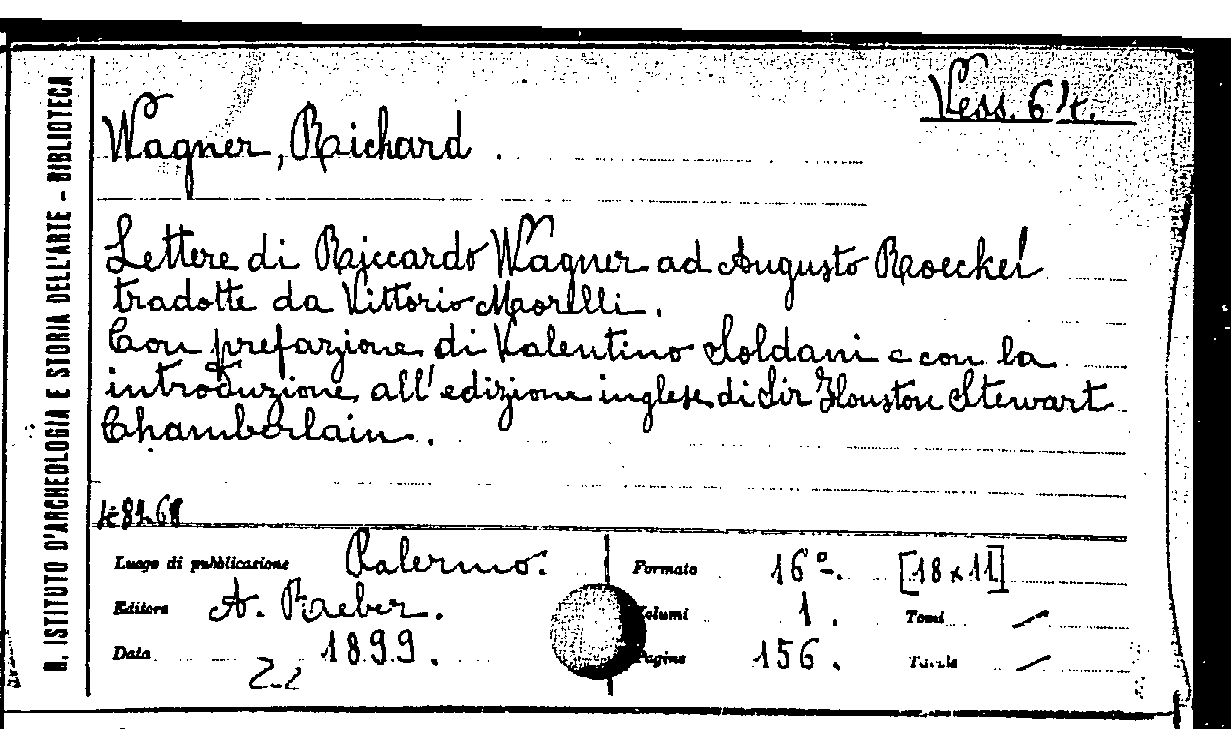 R. ISTITUTO D'ARCHEOLOGIA E STORIA DELL'ARTE - BIBLIOTECA
Vess. 64.
Wagner, Richard.
Lettere di Riccardo Wagner ad Augusto Roeckel
tradotte da Vittorio Morelli.
Con prefazione di Valentino Soldani e con la
introduzione all'edizione inglese di Sir Houston Stewart
Chamberlain.
Luogo di pubblicazione Palermo. Formato 16º. [18 x 11]
Editore A. Raeber. Volumi 1. Tomi /
Data 1899. Pagine 156. Tavole /
2.2